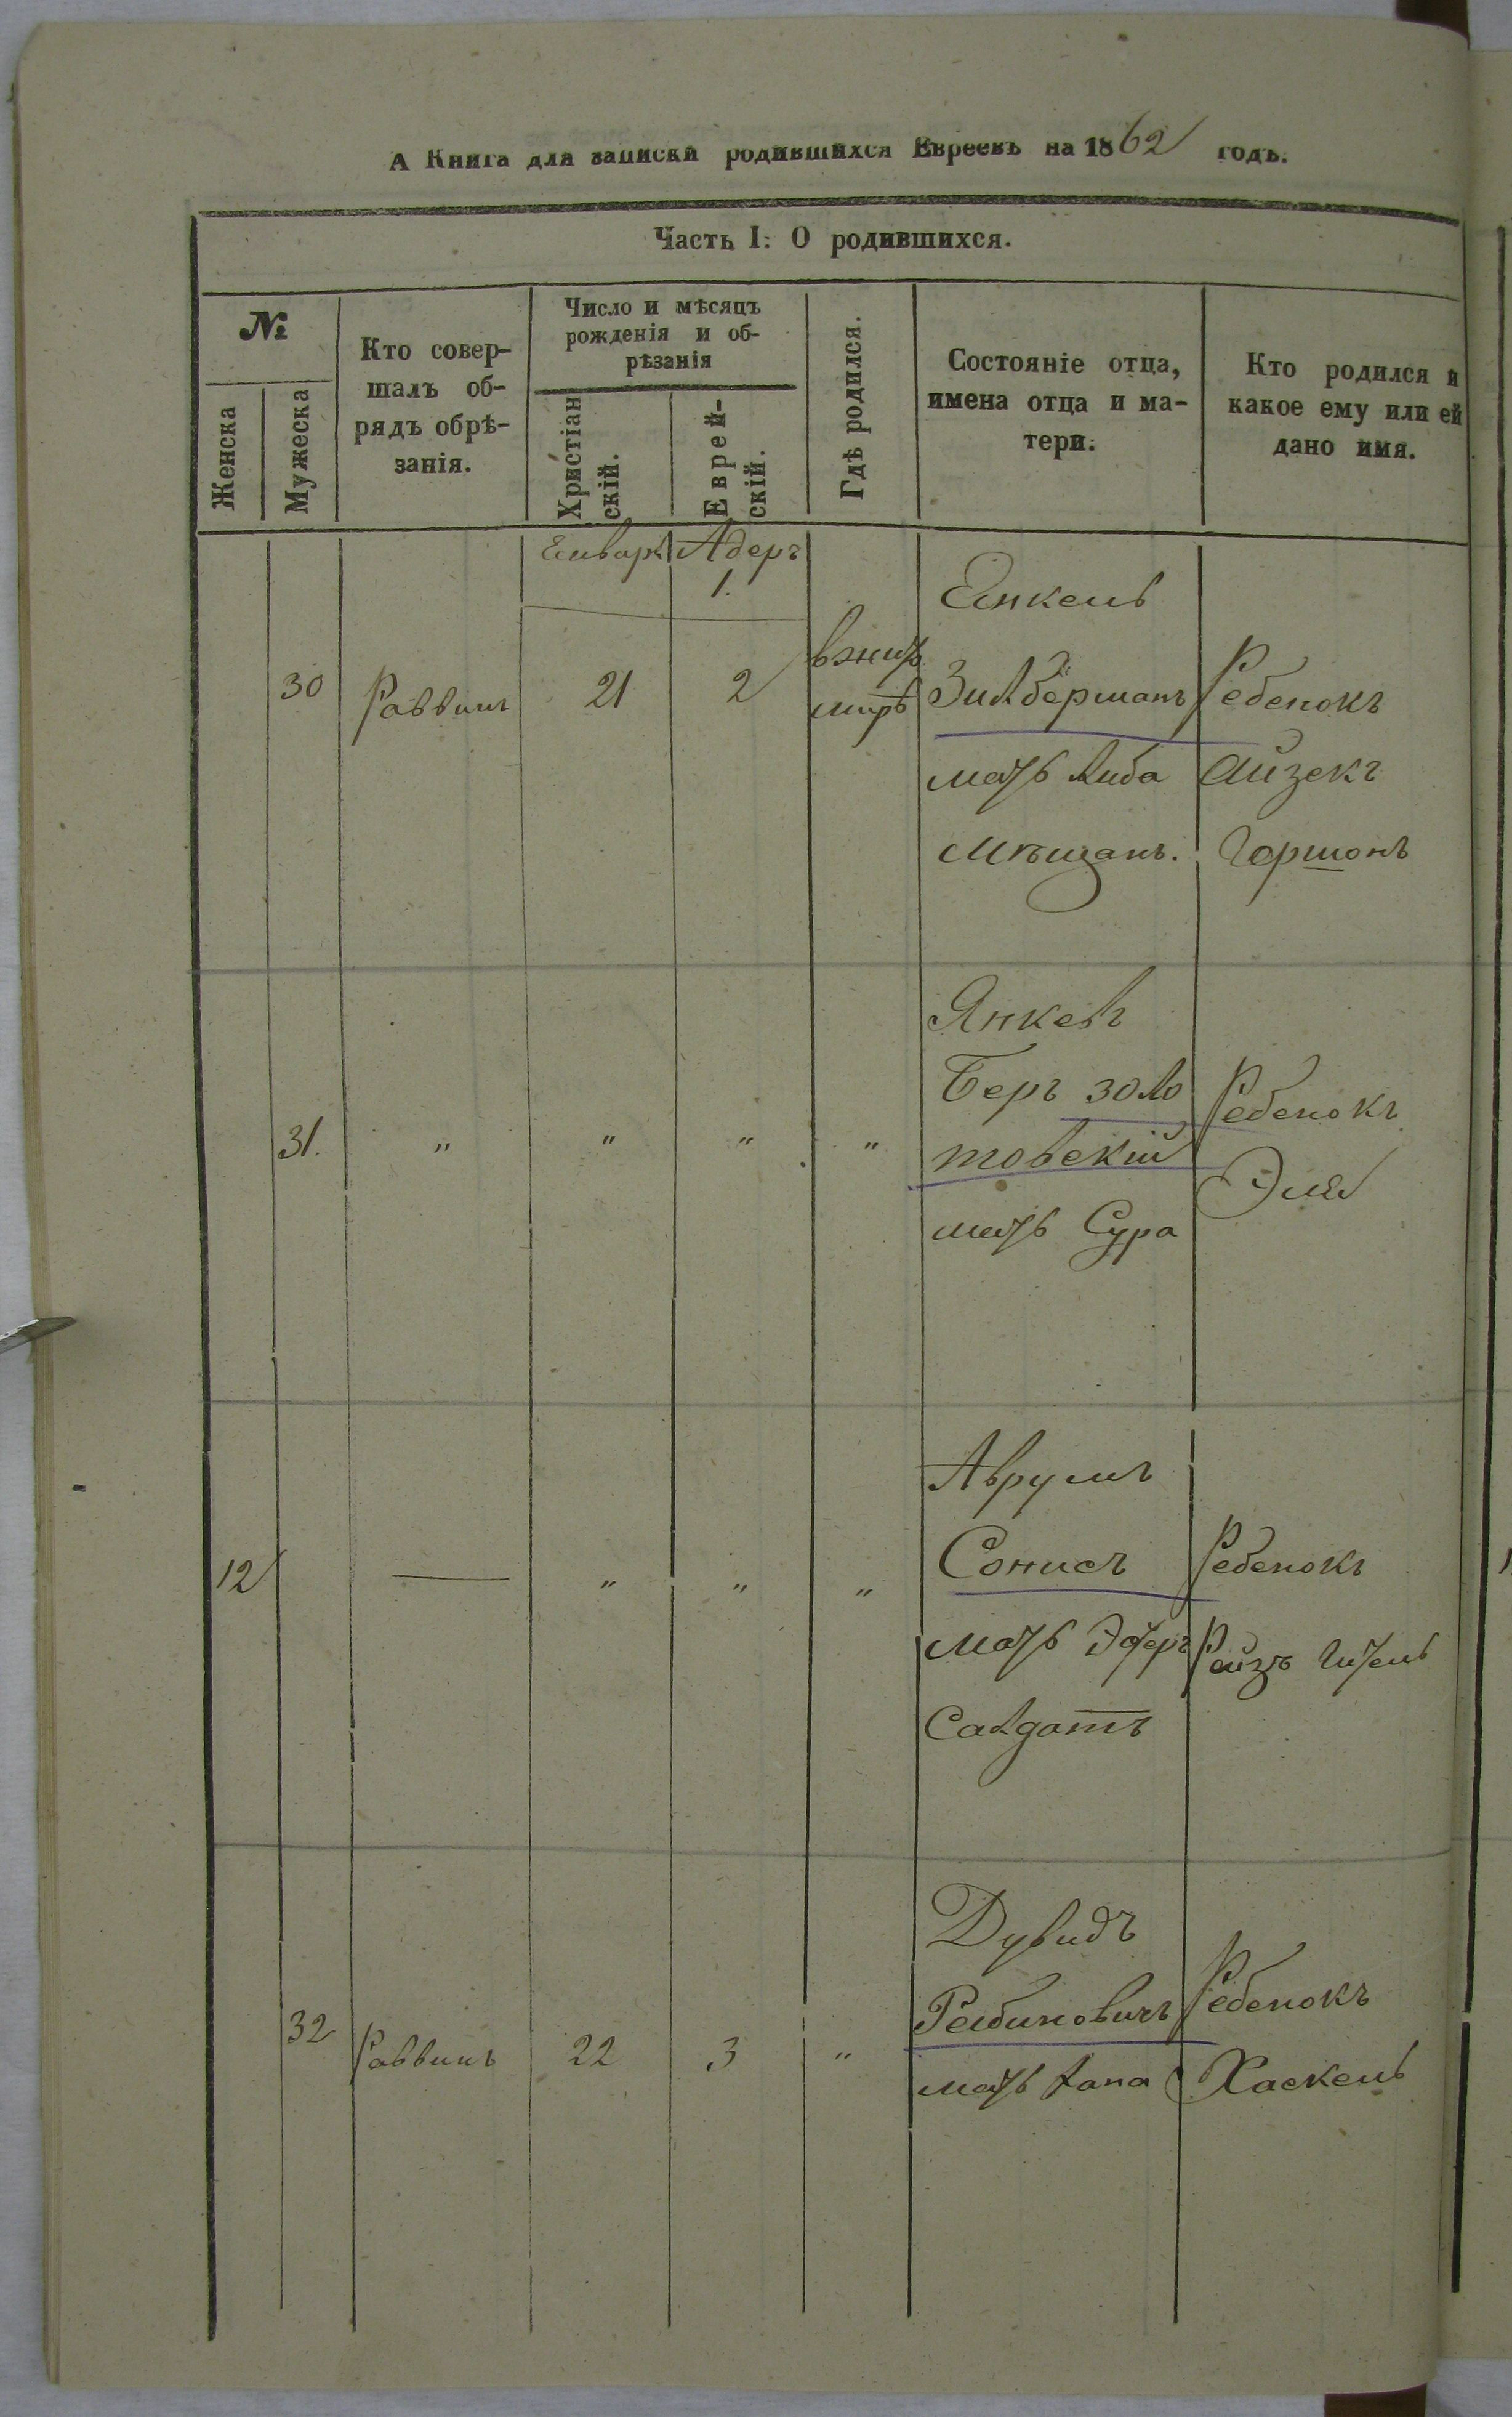 А Книга для записки родившихся Евреевъ на 1862 годъ.
Часть I: О родившихся.
№
Женска
Мужеска
Кто совер-
шалъ об-
рядъ обрѣ-
занія.
Число и мѣсяцъ
рожденія и об-
рѣзанія
Христіан
скій.
Еврей-
скій.
Гдѣ родился.
Состояніе отца,
имена отца и ма-
тери.
Кто родился и
какое ему или ей
дано имя.
Январь Адеръ
1.
30 Раввинъ 21 2
вжит
мирѣ
Янкель
Зилберманъ
мать Либа
Мѣщанъ.
Ребенокъ
Айзекъ
Гершонъ
31. " " " "
Янкевъ
Беръ золо
товскій
мать Сура
Ребенокъ
Эля
12 — " " "
Аврумъ
Сонисъ
мать Эстеръ
Салдатъ
Ребенокъ
Рейзъ Гитель
32 Раввинъ 22 3 "
Дувидъ
Рабиновичъ
мать Хана
Ребенокъ
Хаскель